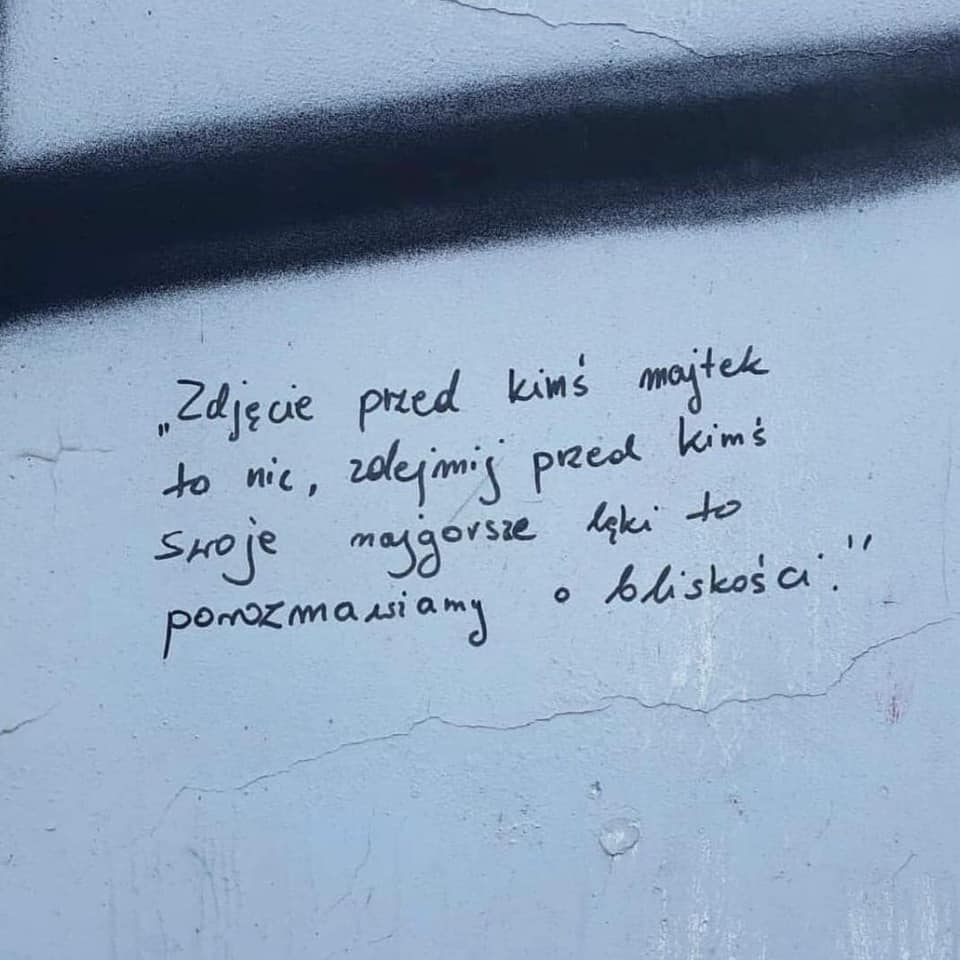 „Zdjęcie przed kimś majtek
to nic, zdejmij przed kimś
swoje najgorsze lęki to
porozmawiamy o bliskości."